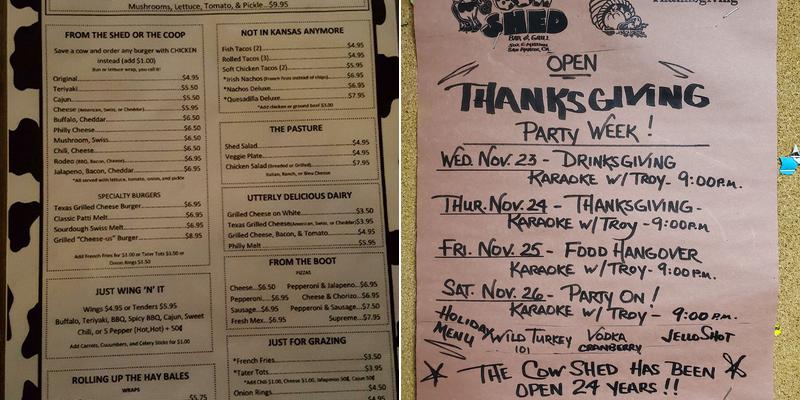 Mushrooms, Lettuce, Tomato, & Pickle...$9.95
FROM THE SHED OR THE COOP
Save a cow and order any burger with CHICKEN
instead (add $1.00)
Bun or lettuce wrap, you call it!
Original $4.95
Teriyaki $5.50
Cajun $5.50
Cheese (American, Swiss, or Cheddar) $5.95
Buffalo, Cheddar $6.50
Philly Cheese $6.50
Mushroom, Swiss $6.50
Chili, Cheese $6.50
Rodeo (BBQ, Bacon, Cheese) $6.95
Jalapeno, Bacon, Cheddar $6.95
*All served with lettuce, tomato, onion, and pickle
SPECIALTY BURGERS
Texas Grilled Cheese Burger $6.95
Classic Patti Melt $5.95
Sourdough Swiss Melt $6.95
Grilled "Cheese-us" Burger $8.95
Add French Fries for $3.00 or Tater Tots $3.50 or
Onion Rings $3.50
JUST WING 'N' IT
Wings $4.95 or Tenders $5.95
Buffalo, Teriyaki, BBQ, Spicy BBQ, Cajun, Sweet
Chili, or 5 Pepper (Hot,Hot) + 50¢
Add Carrots, Cucumbers, and Celery Sticks for $1.00
ROLLING UP THE HAY BALES
WRAPS
$5.75
NOT IN KANSAS ANYMORE
Fish Tacos (2) $4.95
Rolled Tacos (3) $4.95
Soft Chicken Tacos (2) $5.95
*Irish Nachos (French Fries instead of chips) $6.95
*Nachos Deluxe $6.95
*Quesadilla Deluxe $7.95
*Add chicken or ground beef $3.00
THE PASTURE
Shed Salad $4.95
Veggie Plate $4.95
Chicken Salad (Breaded or Grilled) $7.95
Italian, Ranch, or Bleu Cheese
UTTERLY DELICIOUS DAIRY
Grilled Cheese on White $3.50
Texas Grilled Cheese (American, Swiss, or Cheddar) $3.95
Grilled Cheese, Bacon, & Tomato $4.95
Philly Melt $5.95
FROM THE BOOT
PIZZAS
Cheese...$6.50 Pepperoni & Jalapeno..$6.95
Pepperoni....$6.95 Cheese & Chorizo...$6.95
Sausage...$6.95 Pepperoni & Sausage...$7.50
Fresh Mex...$6.95 Supreme...$7.95
JUST FOR GRAZING
*French Fries $3.50
*Tater Tots $3.95
*Add Chili $1.00, Cheese $1.00, Jalapenos 50¢, Cajun 50¢
Onion Rings $4.50
$4.95
SHED
BAR & GRILL
SAN MARCOS, CA.
Thanksgiving
OPEN
THANKSGIVING
PARTY WEEK!
WED. NOV. 23 - DRINKSGIVING
KARAOKE W/ TROY - 9:00 P.M.
THUR. NOV. 24 - THANKSGIVING -
KARAOKE W/ TROY - 9:00 P.M
FRI. NOV. 25 - FOOD HANGOVER
KARAOKE W/ TROY - 9:00 P.M.
SAT. NOV. 26 - PARTY ON!
KARAOKE W/ TROY - 9:00 P.M.
HOLIDAY MENU WILD TURKEY 101 VODKA CRANBERRY JELLO SHOT
THE COW SHED HAS BEEN
OPEN 24 YEARS!!